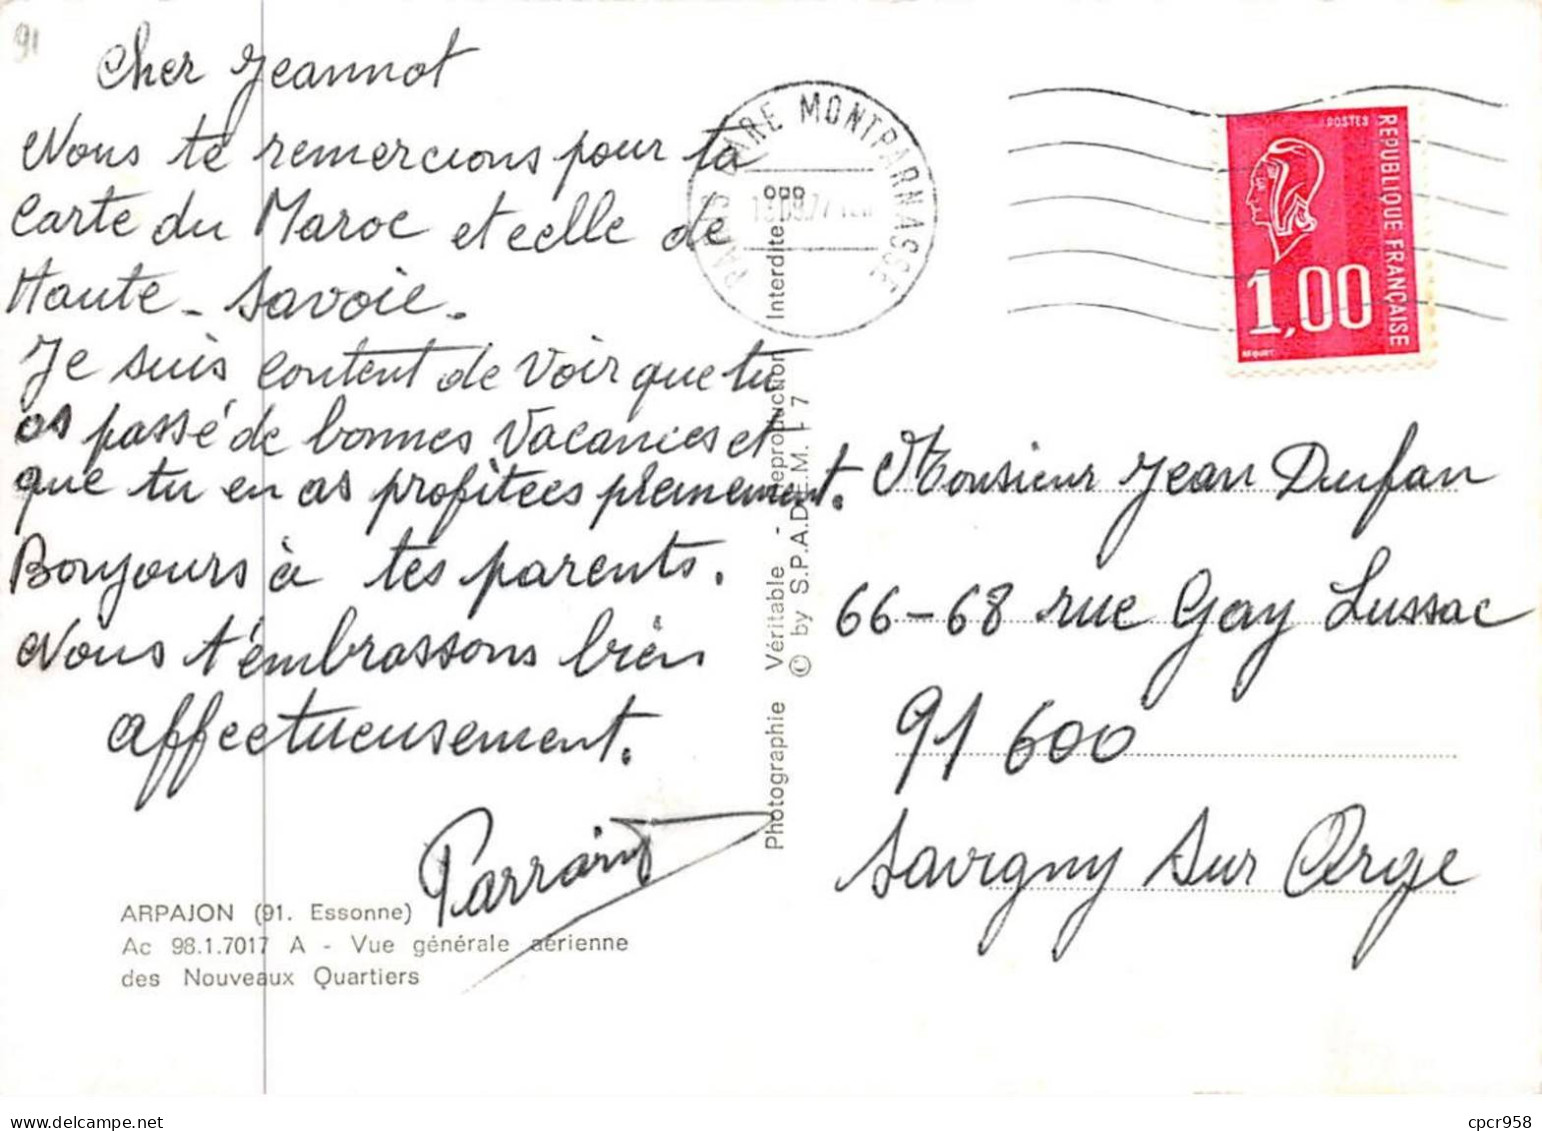 91
Cher Jeannot
Nous te remercions pour ta
Carte du Maroc et celle de
Haute - Savoie -
Je suis content de voir que tu
as passé de bonnes vacances et
que tu en as profitées pleinement.
Bonjours à tes parents.
Nous t'émbrassons bien
affectueusement.
Parrain
ARPAJON (91. Essonne)
Ac 98.1.7017 A - Vue générale aérienne
des Nouveaux Quartiers
Photographie Véritable - Reproduction Interdite
© by S.P.A.D.E.M. 1-7
PARIS GARE MONTPARNASSE
POSTES
REPUBLIQUE FRANÇAISE
1,00
BEQUET
Monsieur Jean Dufan
66-68 rue Gay Lussac
91 600
Savigny Sur Orge
delcampe.net
cpcr958